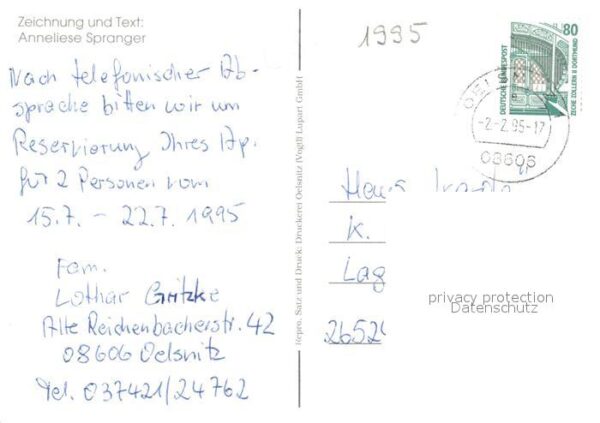 Zeichnung und Text:
Anneliese Spranger
Nach telefonischer Ab-
sprache bitten wir um
Reservierung Ihres Ap.
für 2 Personen vom
15.7. – 22.7. 1995
Fam.
Lothar Gritzke
Alte Reichenbacherstr. 42
08606 Oelsnitz
Tel. 037421/24762
Repro, Satz und Druck: Druckerei Oelsnitz (Vogtl) Lupart GmbH
1995
80
DEUTSCHE BUNDESPOST
ZECHE ZOLLERN II DORTMUND
-2.-2.95-17
08606
K.
Lag
2652
privacy protection
Datenschutz